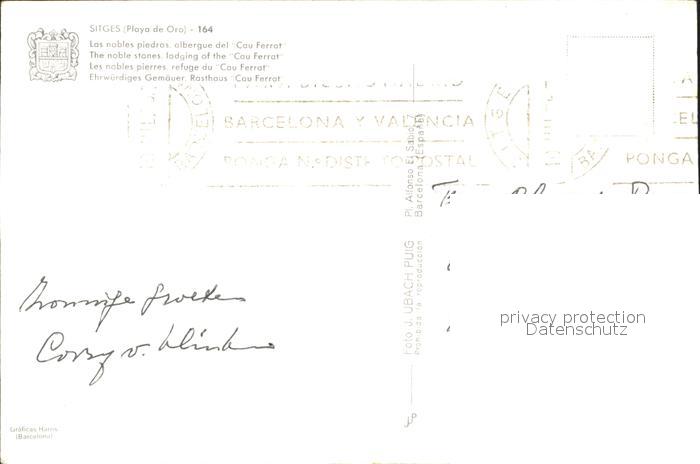 SITGES (Playa de Oro) - 164
Las nobles piedras, albergue del "Cau Ferrat"
The noble stones, lodging of the "Cau Ferrat"
Les nobles pierres, refuge du "Cau Ferrat"
Ehrwürdiges Gemäuer, Rasthaus "Cau Ferrat"
BARCELONA Y VALENCIA
PONGA N.DISTRITO POSTAL
PONGA
Pl. Alfonso El Sabio, 7
Barcelona (España)
Foto J. UBACH PUIG
Prohibida la reproducción
Zonnige groeten
Corry v.
privacy protection
Datenschutz
Gráficas Harris
(Barcelona)